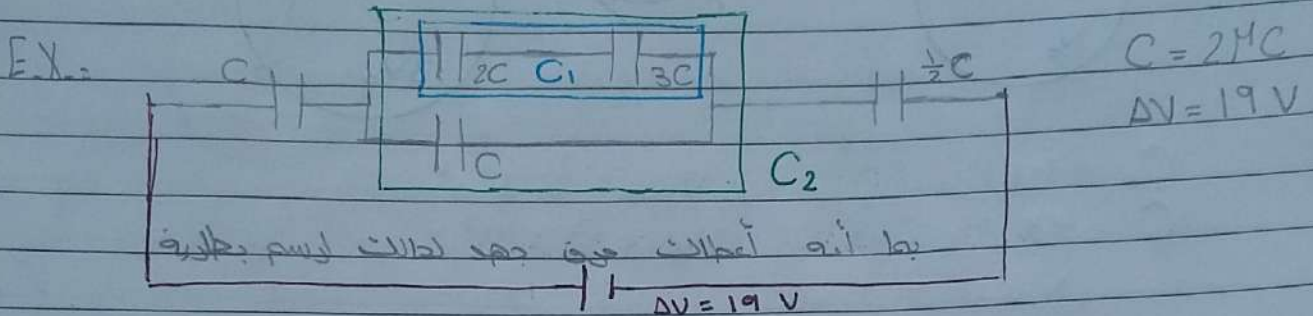 EX.: C 2C C₁ 3C ½C C = 2μC
ΔV = 19 V
C C₂
بما أنه أعطاك فرق جهد لحالك ارسم بطارية
ΔV = 19 V